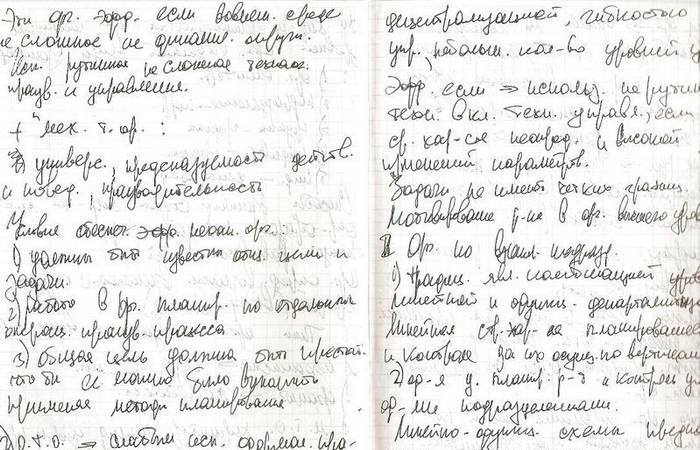 Эти ор. эфф. если во внеш. среде
не сложное не динамич. окруж.
Исп. рутинная не сложная технол.
произв. и управления.
+ "мех. т. ор. :
универс., предсказуемость действ.
и повед., производительность
Условия обеспеч. эфф. механ. орг.:
1) должны быть известны общ. цели и
задачи.
2) работа в ор. планир. по отдельным
операц. произв. процесса
3) общая цель должна быть простой.
что бы её можно было выполнить
применяя методы планирования
О.т.О. => слабым исп.
децентрализацией, гибкостью
упр., небольш. кол-во уровней
Эфф. если => использ. не рутин
техн. вкл. техн. управл., если
ср. хар-ся неопред. и высокой
изменений параметров.
Задачи не имеют четких границ.
Мотивирование р-ка в ор. высшего уров
II Ор. по взаим. подразд.
1) традиц. явл. комбинацией
линейной и функц. департаментиз
Линейная стр. хар-ся планированием
и контроля за их осущ. по вертикали
2) ор-я у. планир. р-т и контроль
ор-ми подразделениями.
Линейно-функц. схема